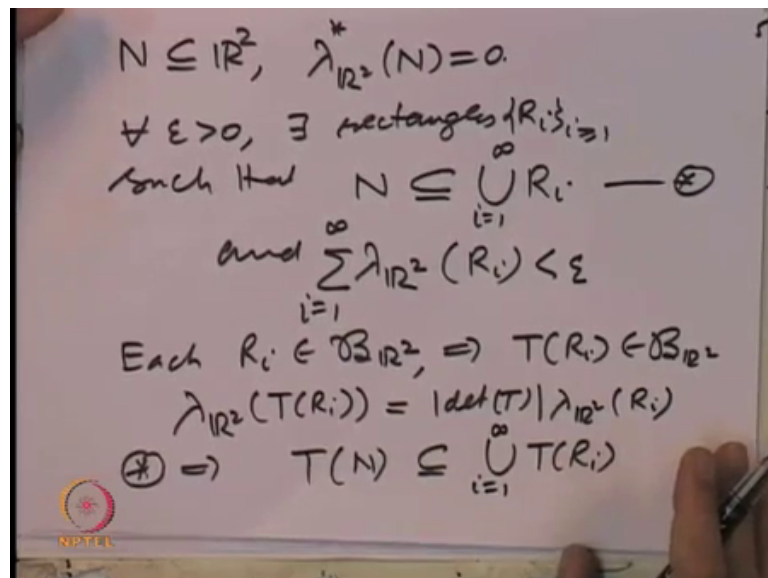 N ⊆ ℝ², λ*_ℝ²(N) = 0.
∀ ε > 0, ∃ rectangles {R_i}_{i≥1}
such that N ⊆ ⋃_{i=1}^∞ R_i. — ⊛
and ∑_{i=1}^∞ λ_ℝ²(R_i) < ε
Each R_i ∈ 𝓑_ℝ², ⇒ T(R_i) ∈ 𝓑_ℝ²
λ_ℝ²(T(R_i)) = |det(T)| λ_ℝ²(R_i)
⊛ ⇒ T(N) ⊆ ⋃_{i=1}^∞ T(R_i)
NPTEL